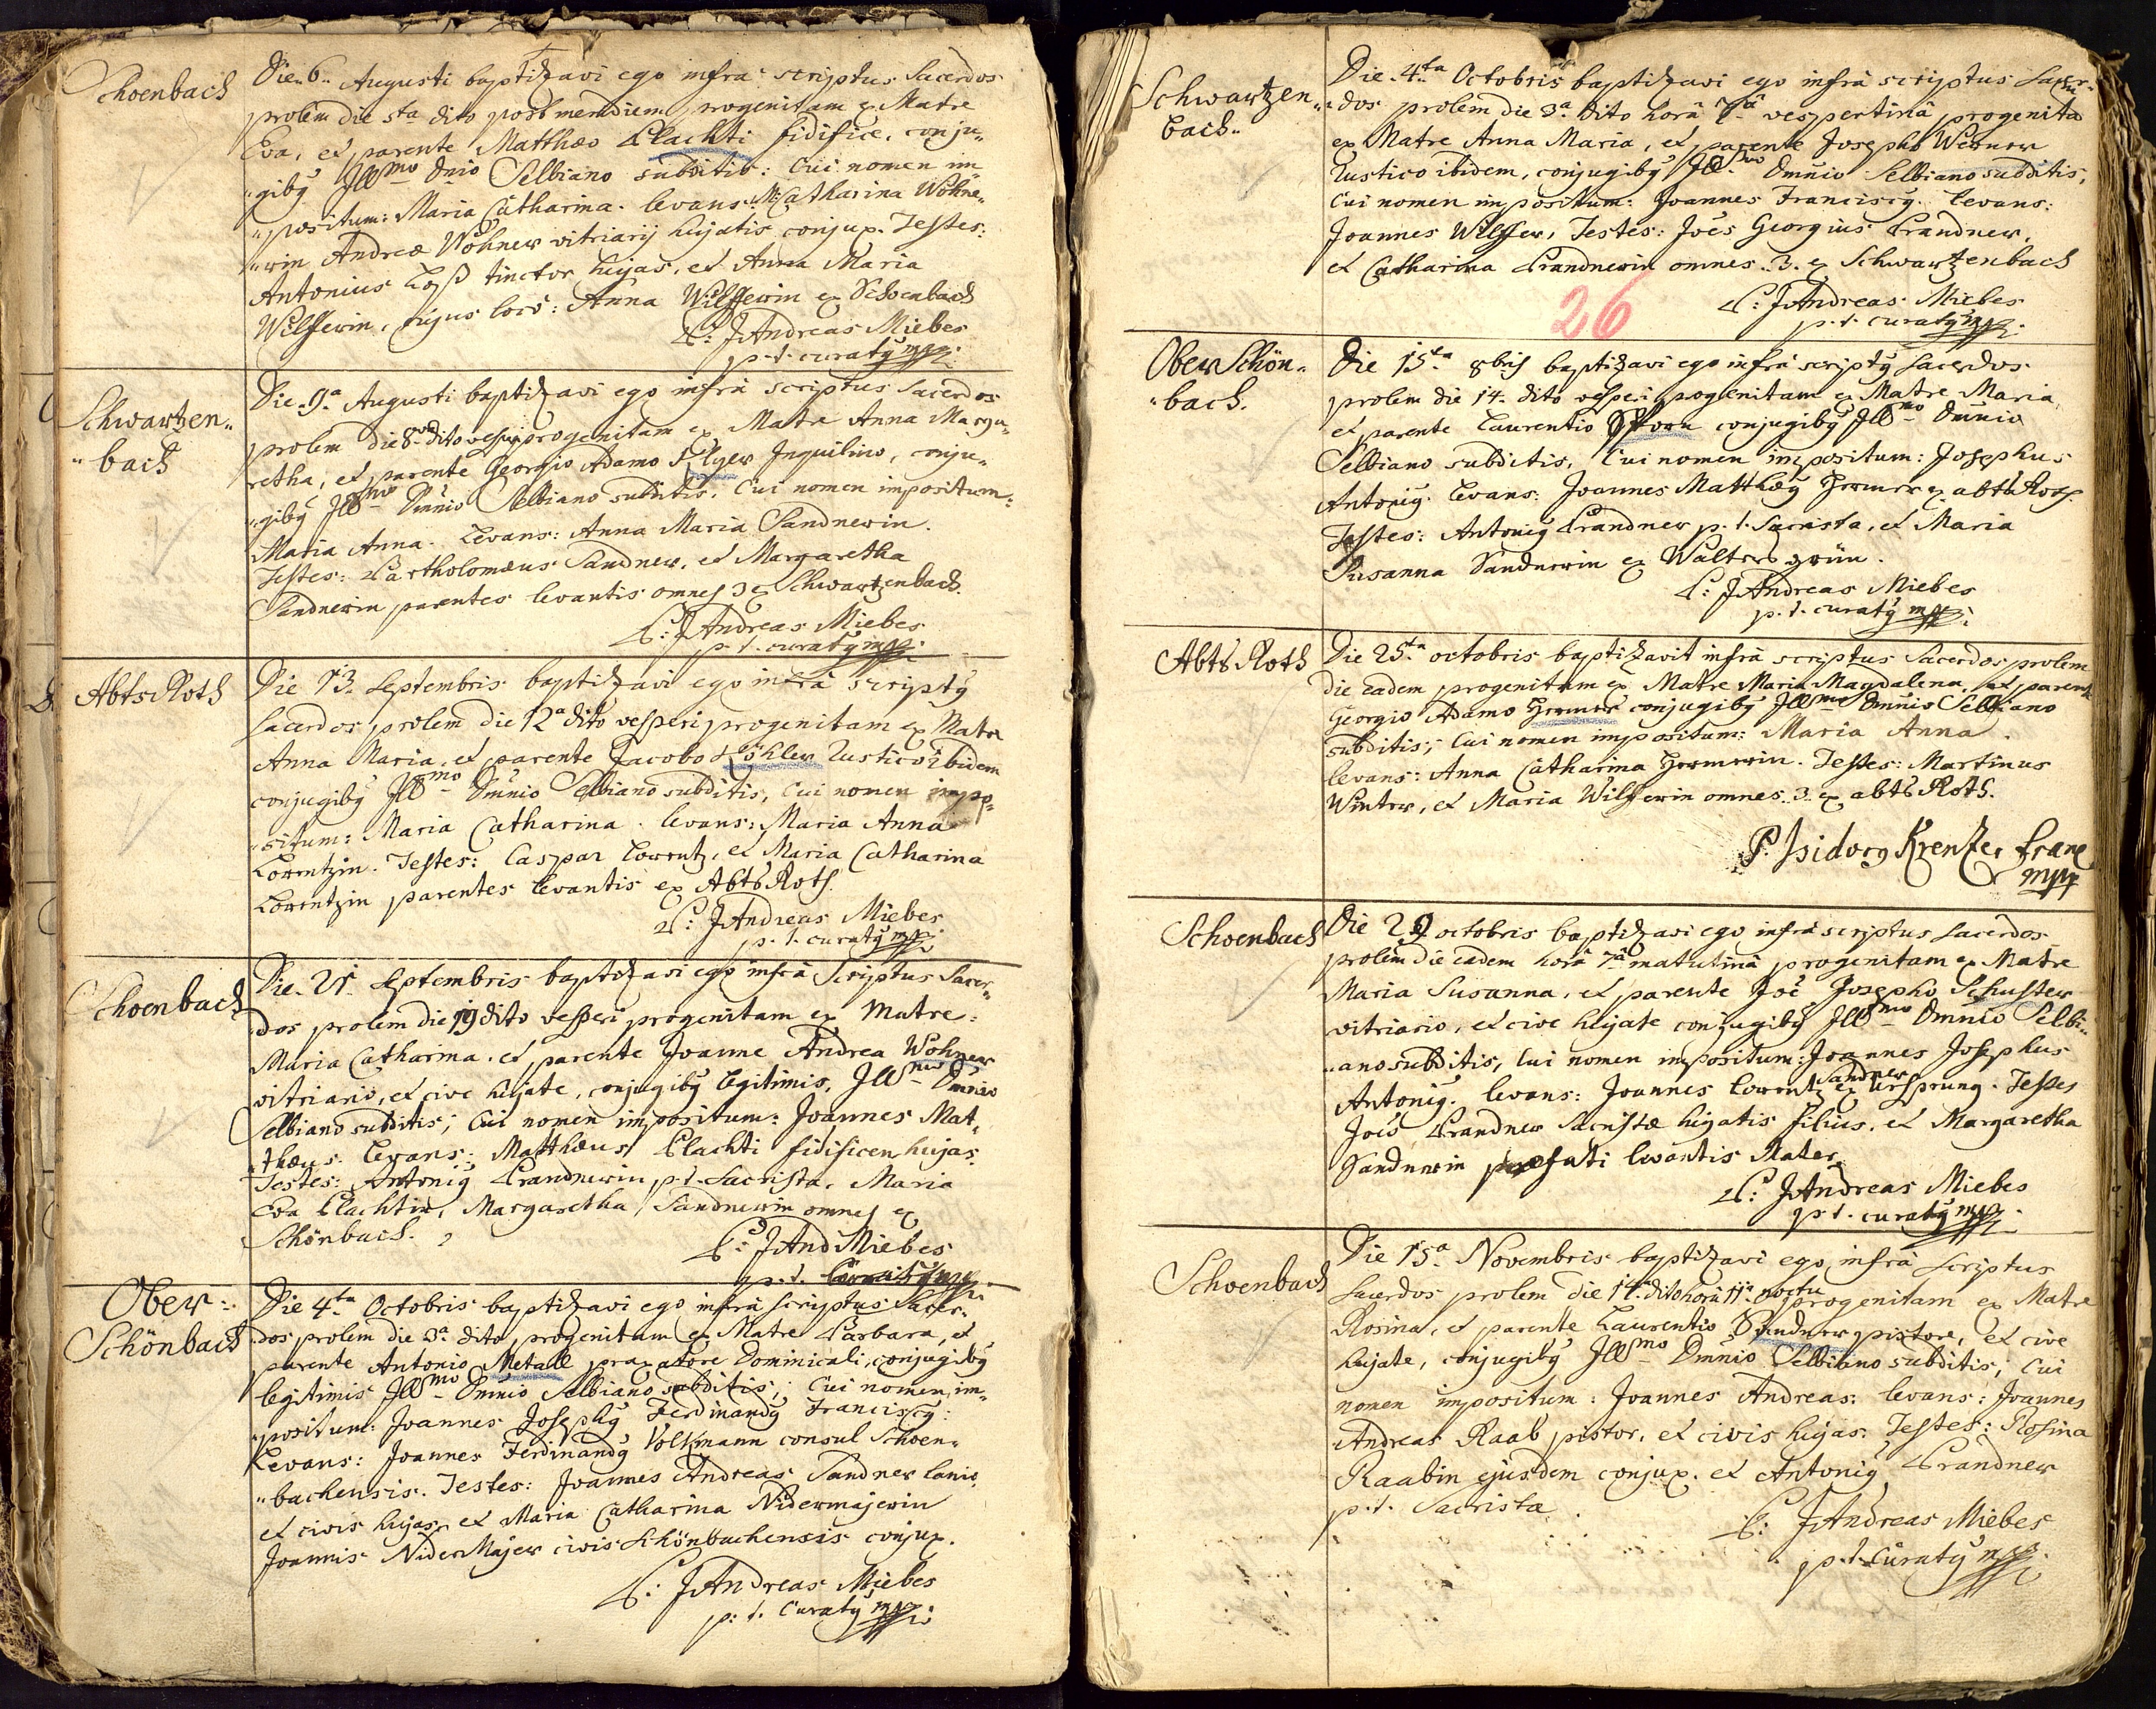 Schoenbach
Die 6. Augusti baptizavi ego infra scriptus Sacerdos
prolem die 5ta dito post meridiem progenitam ex Matre
Eva, et parente Matthæo Plachti fidifice, conju„
„gibȳ Jllmo Dnio Selbiano subditis: Cui nomen im
„positum: Maria Catharina. levans: M: Catharina Wohne„
„rin Andreæ Wohner vitriarij hujatis conjux. Testes:
Antonius Loß tinctor hujas, et Anna Maria
Wilfferin, cujus loco: Anna Wilfferin ex Schoenbach
P: JAndreas Miebes
p. t. curatȳ mpp.
Schwartzen„
„bach
Die 9a Augusti baptizavi ego infrà scriptus Sacerdos
prolem die 8va dito vesperi progenitam ex Matre Anna Marga„
retha, et parente Georgio Adamo Inquilino, conju„
„gibȳ Jllmo Dmnio Selbiano subditis. Cui nomen impositum:
Maria Anna. Levans: Anna Maria Sandnerin.
Testes: Bartholomæus Sandner, et Margaretha
Sandnerin parentes levantis omnes 3 ex Schwartzenbach.
P: JAndreas Miebes
p. t. curatȳ mpp.
Abts Roth
Die 13. Septembris baptizavi ego infrà scriptȳ
Sacerdos prolem die 12a dito vesperi progenitam ex Matre
Anna Maria, et parente Jacobo Köhler Rustico ibidem
conjugibȳ Jllmo Dmnio Selbiano subditis, Cui nomen impo„
„situm: Maria Catharina. levans: Maria Anna
Lorentzin. Testes: Caspar Lorentz, et Maria Catharina
Lorentzin parentes levantis ex Abts Roth.
P: JAndreas Miebes
p. t. curatȳ mpp.
Schoenbach
Die 21 Septembris baptizavi ego infrà Scriptus Sacer„
„dos prolem die 19 dito vesperi progenitam ex Matre:
Maria Catharina, et parente Joanne Andrea Wohner
vitriario, et cive hujate, conjugibȳ legitimis, Jllmo Dmnio
Selbiano subditis; Cui nomen impositum: Joannes Mat„
„thæus. Levans: Matthæus Plachti fidificen hujas.
Testes: Antoniȳ Prandnerin p. t. Sacrista, Maria
Eva Plachtin, Margaretha Sandnerin omnes ex
Schönbach.
P: JAnd Miebes
p. t. Curatȳ mpp.
Ober:
Schönbach
Die 4ta Octobris baptizavi ego infrà scriptus Sacer„
„dos prolem die 3a dito progenitam ex Matre Barbara, et
parente Antonio Metall praxatore Dominicali, conjugibȳ
legitimis Jllmo Dmnio Selbiano subditis; Cui nomen im„
„positum: Joannes Josephȳ Ferdinandȳ Franciscȳ:
Levans: Joannes Ferdinandȳ Volkmann consul Schoen„
„bachensis. Testes: Joannes Andreas Sandner lanio
et civis hujas, et Maria Catharina Nidermajerin
Joannis NiderMajer civis Schönbachensis conjux.
P: JAndreas Miebes
p: t. Curatȳ mpp.
Schwartzen„
bach„
Die 4ta Octobris baptizavi ego infrà scriptus Sacer„
„dos prolem die 3a dito horâ 7ma vespertinâ progenitam
ex Matre Anna Maria, et parente Josepho Werner
Rustico ibidem, conjugibȳ Jllmo Dmnio Selbiano subditis;
Cui nomen impositum: Joannes Franciscȳ. Levans:
Joannes Wilffer, Testes: Joẽs Georgius Prandner,
et Catharina Prandnerin omnes 3. ex Schwartzenbach
26
P: JAndreas Miebes
p. t. curatȳ mpp.
Ober Schön„
„bach.
Die 15ta 8bris baptizavi ego infrà scriptȳ Sacerdos
prolem die 14. dito vesperi progenitam ex Matre Maria,
et parente Laurentio conjugibȳ Jllmo Dmnio
Selbiano subditis, Cui nomen impositum: Josephus
Antoniȳ. Levans: Joannes Matthæȳ ex abts Roth.
Testes: Antoniȳ Prandner p. t. Sacrista, et Maria
Susanna Sandnerin ex Walters grün.
P: JAndreas Miebes
p. t. curatȳ mpp.
Abts Roth
Die 25ta octobris baptizavit infrà scriptus Sacerdos prolem
die eadem progenitam ex Matre Maria Magdalena, et parente
Georgio Adamo conjugibȳ Jllmo Dmnio Selbiano
subditis; Cui nomen impositum: Maria Anna.
levans: Anna Catharina. Testes: Martinus
Winter, et Maria Wilfferin omnes 3. ex abts Roth.
P. Isidorȳ Krentzer Franc
mpp
Schoenbach
Die 29 octobris baptizavi ego infrà scriptus Sacerdos
prolem die eadem horâ 7ma matutinâ progenitam ex Matre
Maria Susanna, et parente Joẽ Josepho Schuster
vitriario, et cive hujate conjugibȳ Jllmo Dmnio Selbi„
„ano subditis, Cui nomen impositum: Joannes Josephus
Antoniȳ. levans: Joannes Lorentz Sandner ex Ursprung. Testes
Joẽs Prandner Sacristæ hujatis filius, et Margaretha
Sandnerin præfati levantis Mater
P: JAndreas Miebes
p. t. curatȳ mpp.
Schoenbach
Die 15a Novembris baptizavi ego infrà Scriptus
Sacerdos prolem die 14 dito horâ 11a noctu progenitam ex Matre
Rosina, et parente Laurentio Sandner pistore, et cive
hujate, conjugibȳ Jllmo Dmnio Selbiano subditis; Cui
nomen impositum: Joannes Andreas. levans: Joannes
Andreas Raab pistor, et civis hujas. Testes: Rosina
Raabin ejusdem conjux. et Antoniȳ Prandner
p. t. Sacrista
P: JAndreas Miebes
p. t. Curatȳ mpp.